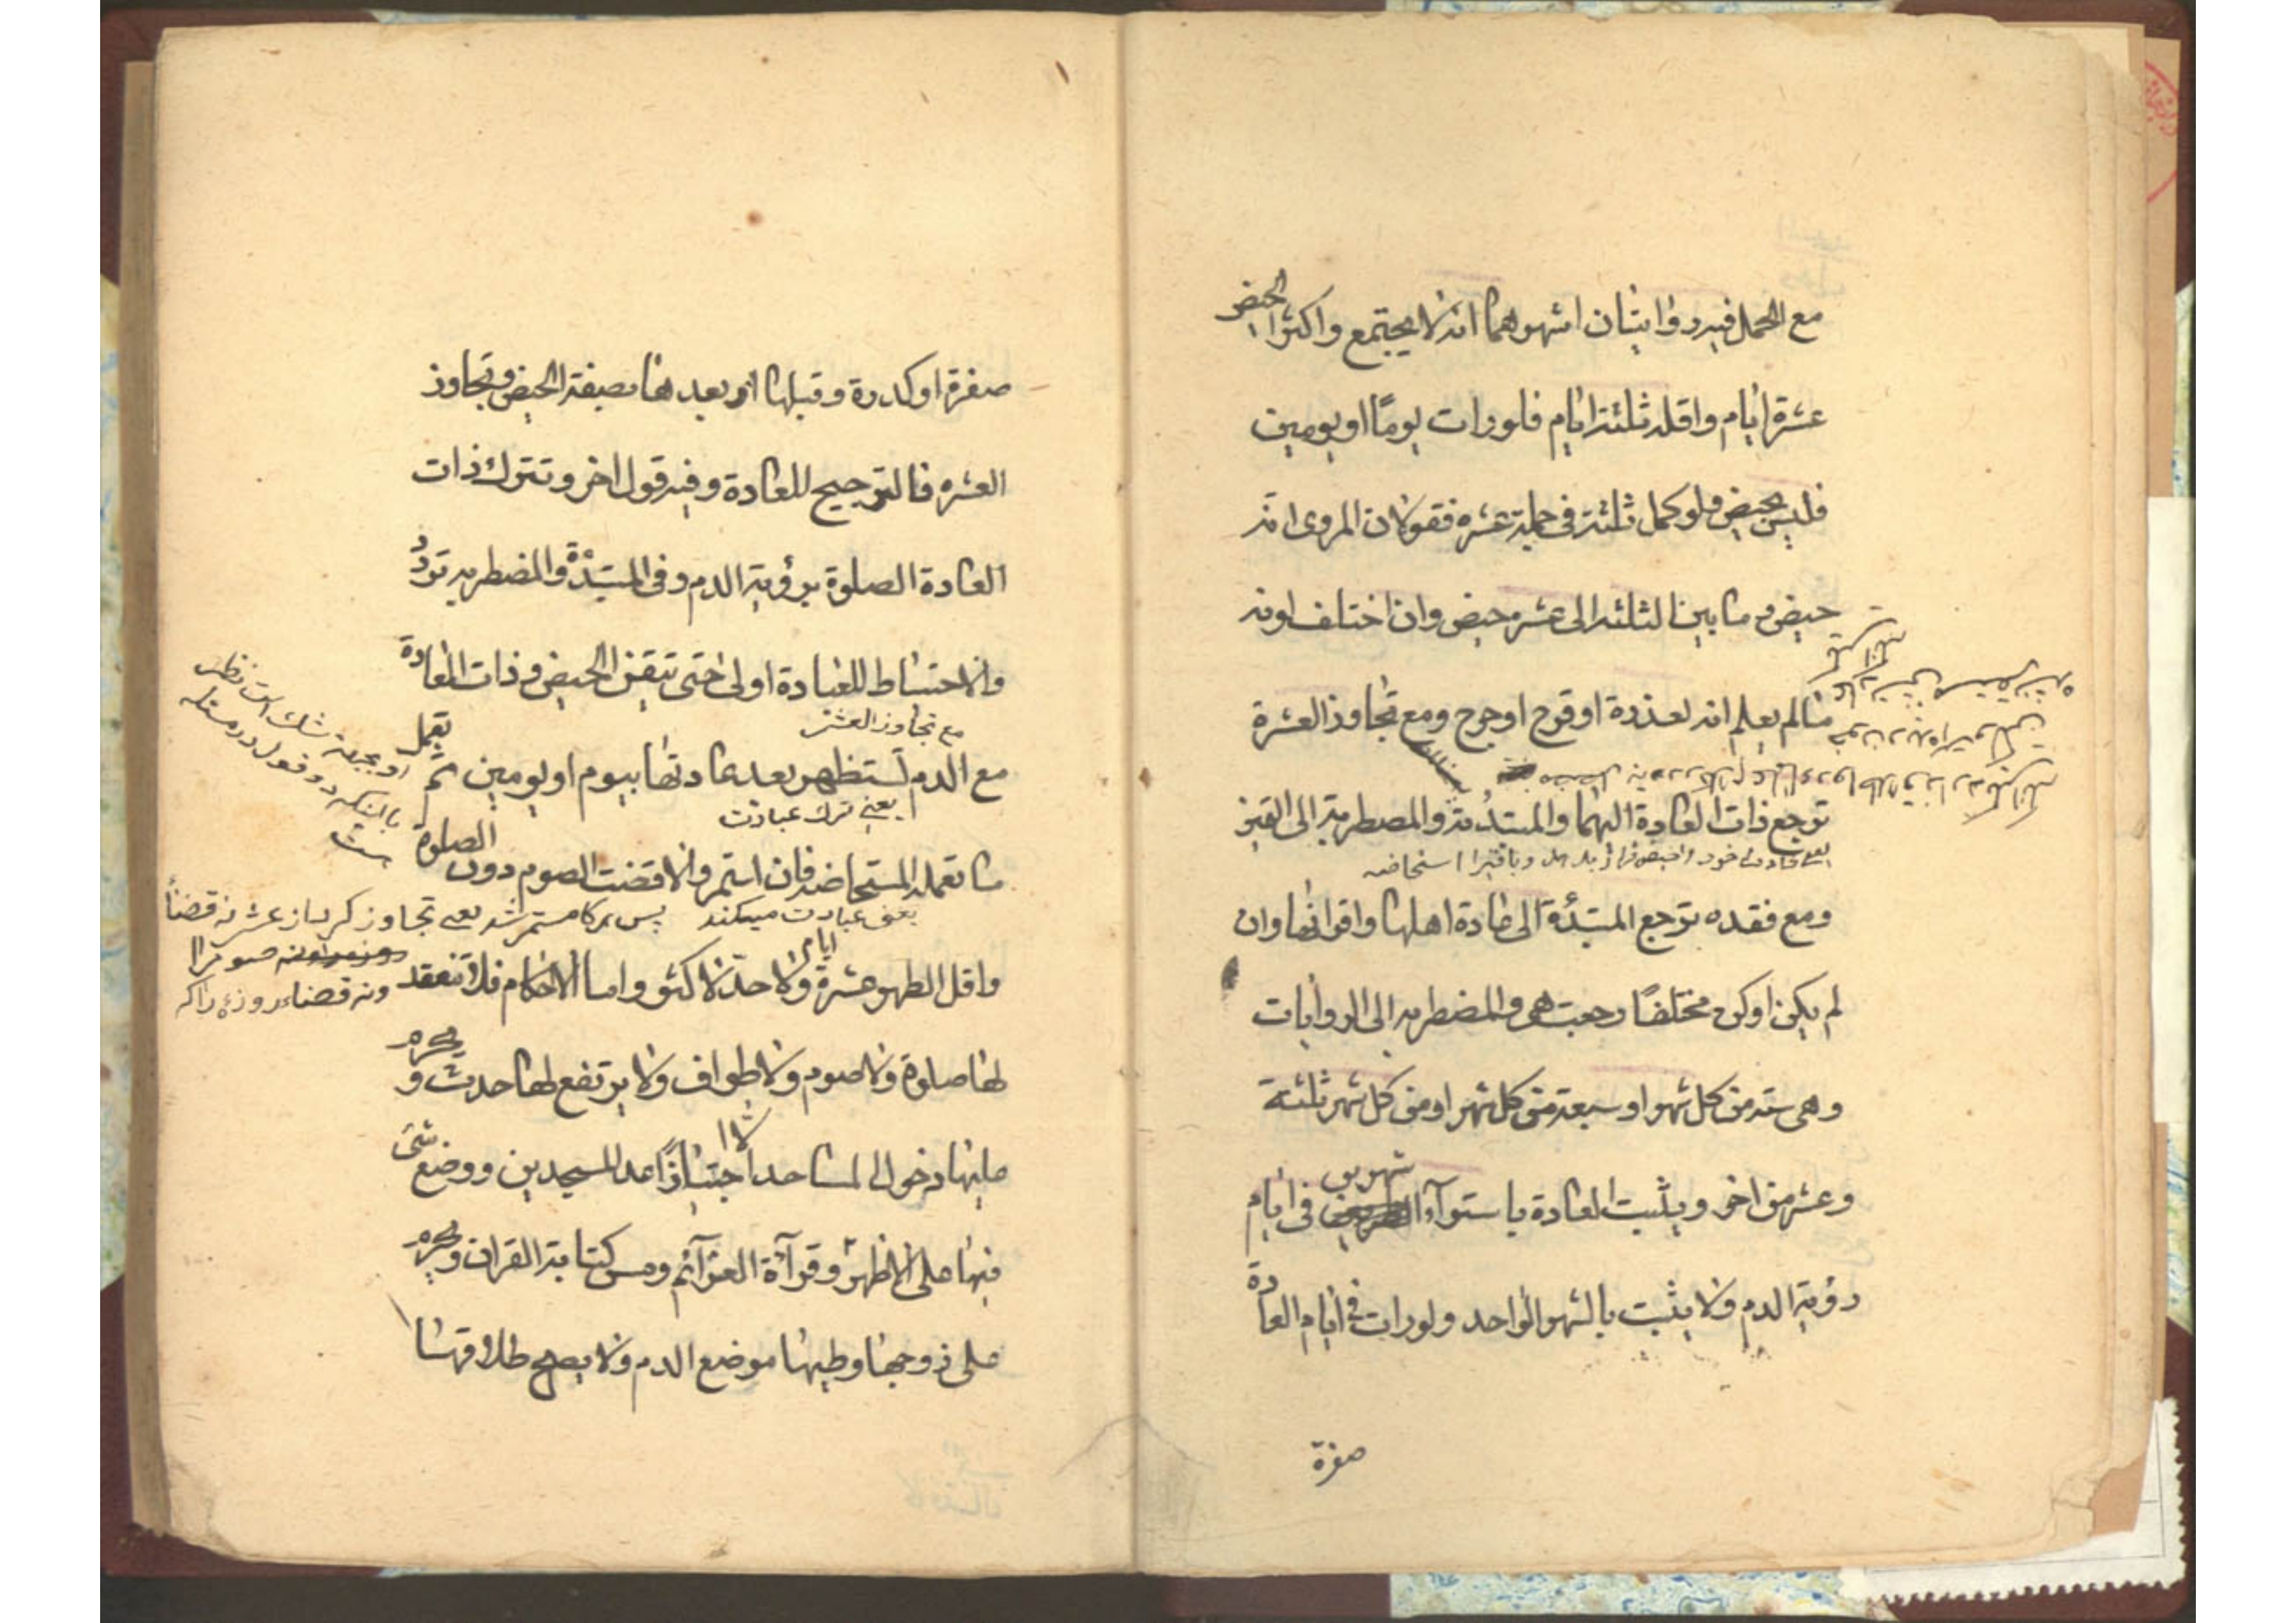 مع الحمل فيه روايتان اشهرهما انه لا يجتمع واكثر الحيض
عشرة ايام واقله ثلثة ايام فلو رات يومًا او يومين
فليس بحيض ولو كمل ثلثة فى جملة عشره فقولان المروى انه
حيض و ما بين الثلثه الى عشره حيض وان اختلف لونه
ما لم يعلم انه لعذرة او قرح او جرح ومع تجاوز العشرة
ترجع ذات العادة اليها والمبتدئة والمضطربة الى التميز
يعنى عادت خود را حيض قرار بدهد و باقيرا استحاضه
ومع فقده ترجع المبتدئة الى عادة اهلها واقرانها وان
لم يكن او كن مختلفًا رجعت هى والمضطربه الى الروايات
وهى سته من كل شهر او سبعة من كل شهر او من كل شهر ثلثة
وعشره من اخر ويثبت العادة باستوآء شهرين فى ايام
رؤية الدم ولا يثبت بالشهر الواحد ولو رات فى ايام العادة
صفرة
صفرة او كدرة وقبلها او بعدها بصفة الحيض وتجاوز
العشره فالترجيح للعادة وفيه قول اخر وتترك ذات
العادة الصلوة برؤية الدم وفى المبتدئة والمضطربه تردد
والاحتياط للعبادة اولى حتى تتيقن الحيض و ذات العادة
مع تجاوز العشر
مع الدم تستظهر بعد عادتها بيوم او يومين ثم تعمل
يعنى ترك عبادت
ما تعمله المستحاضه فان استمر والا قضت الصوم دون الصلوة
يعنى عبادت ميكند پس هركاه مستمر شد يعنى تجاوز كرد از عشر نه قضاء
واقل الطهر عشرة ايام ولا حد لاكثره واما الاحكام فلا تنعقد
ونه قضاء روزه را كه
لها صلوة ولا صوم ولا طواف ولا يرتفع لها حدث و يحرم
عليها دخول المساجد الا اجتيازًا عدا المسجدين ووضع شئ
فيها على الاظهر وقرآءة العزآئم ومس كتابة القران ويحرم
على زوجها وطيها موضع الدم ولا يصح طلاقها